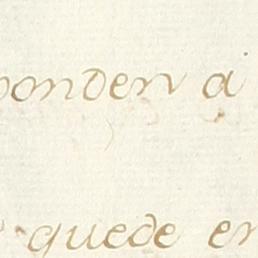 ponden a
quede en